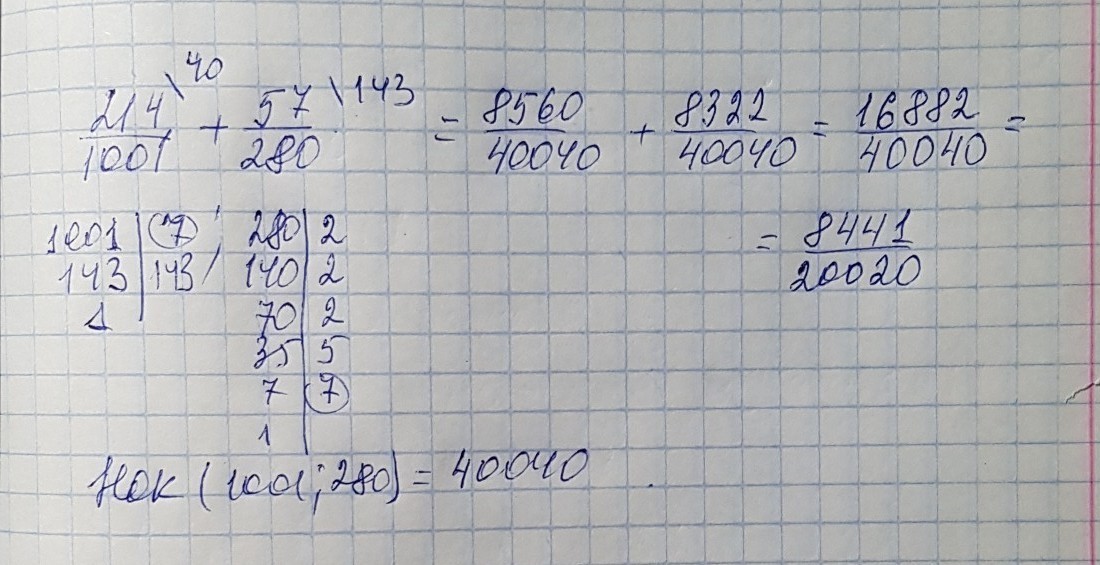 214\40 / 1001 + 57\143 / 280 = 8560/40040 + 8322/40040 = 16882/40040 =
= 8441/20020
1001 | 7 280 | 2
143 | 143 140 | 2
1 | 70 | 2
35 | 5
7 | 7
1 |
НОК (1001; 280) = 40040